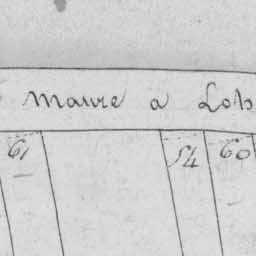 Maurre a Lob
61 54 60